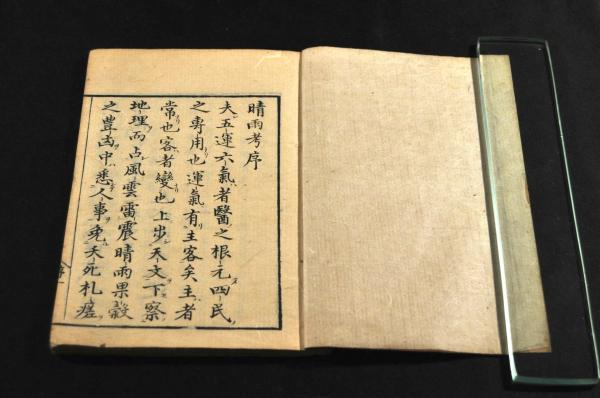 晴雨考序
夫五運六氣者醫之根元四民
之專用也運氣有主客矣主者
常也客者變也上步天文下察
地理而占風雲雷震晴雨果穀
之豊凶中悉人事免夭死札瘥